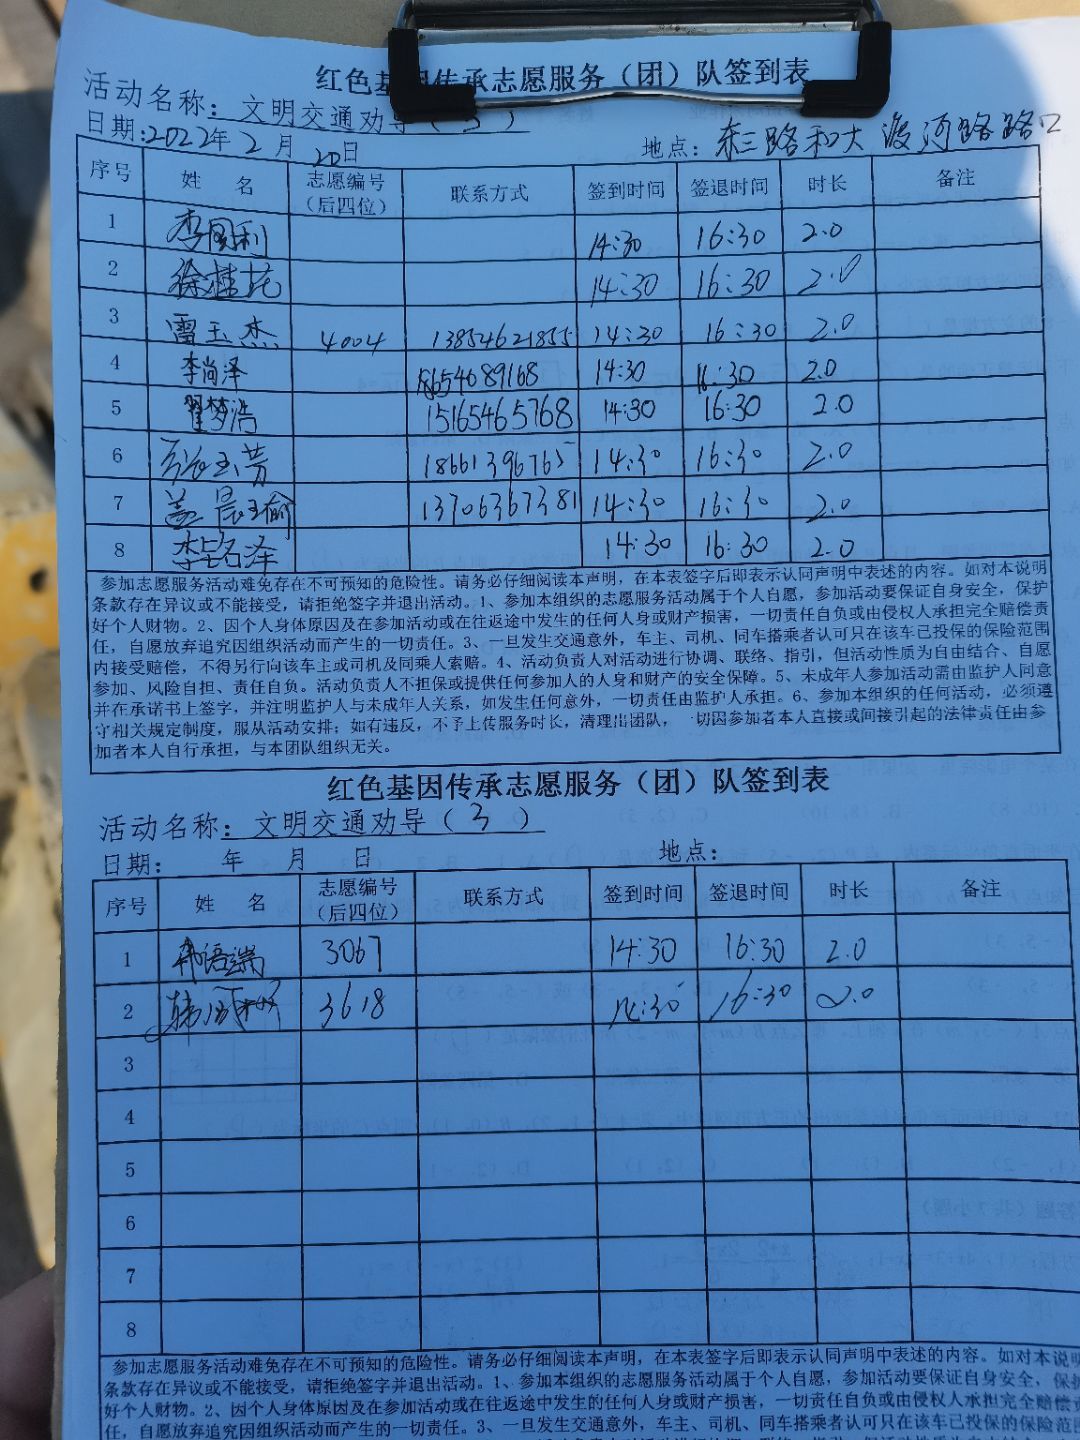 红色基因传承志愿服务（团）队签到表
活动名称：文明交通劝导（3）
日期：2022年2月20日 地点：东三路和大渡河路路口
序号 姓名 志愿编号（后四位） 联系方式 签到时间 签退时间 时长 备注
1 李国利 14:30 16:30 2.0
2 徐桂花 14:30 16:30 2.0
3 雷玉杰 4004 13854621855 14:30 16:30 2.0
4 李尚泽 18654689168 14:30 16:30 2.0
5 翟梦浩 15165465768 14:30 16:30 2.0
6 玉芳 18661396765 14:30 16:30 2.0
7 盖晨瑜 13706367381 14:30 16:30 2.0
8 李铭泽 14:30 16:30 2.0
参加志愿服务活动难免存在不可预知的危险性。请务必仔细阅读本声明，在本表签字后即表示认同声明中表述的内容。如对本说明
条款存在异议或不能接受，请拒绝签字并退出活动。1、参加本组织的志愿服务活动属于个人自愿，参加活动要保证自身安全，保护
好个人财物。2、因个人身体原因及在参加活动或在往返途中发生的任何人身或财产损害，一切责任自负或由侵权人承担完全赔偿责
任，自愿放弃追究因组织活动而产生的一切责任。3、一旦发生交通意外，车主、司机、同车搭乘者认可只在该车已投保的保险范围
内接受赔偿，不得另行向该车主或司机及同乘人索赔。4、活动负责人对活动进行协调、联络、指引，但活动性质为自由结合、自愿
参加、风险自担、责任自负。活动负责人不担保或提供任何参加人的人身和财产的安全保障。5、未成年人参加活动需由监护人同意
并在承诺书上签字，并注明监护人与未成年人关系，如发生任何意外，一切责任由监护人承担。6、参加本组织的任何活动，必须遵
守相关规定制度，服从活动安排；如有违反，不予上传服务时长，清理出团队，一切因参加者本人直接或间接引起的法律责任由参
加者本人自行承担，与本团队组织无关。
红色基因传承志愿服务（团）队签到表
活动名称：文明交通劝导（3）
日期： 年 月 日 地点：
序号 姓名 志愿编号（后四位） 联系方式 签到时间 签退时间 时长 备注
1 语端 3067 14:30 16:30 2.0
2 韩 3618 14:30 16:30 2.0
3
4
5
6
7
8
参加志愿服务活动难免存在不可预知的危险性。请务必仔细阅读本声明，在本表签字后即表示认同声明中表述的内容。如对本说明
条款存在异议或不能接受，请拒绝签字并退出活动。1、参加本组织的志愿服务活动属于个人自愿，参加活动要保证自身安全，保护
好个人财物。2、因个人身体原因及在参加活动或在往返途中发生的任何人身或财产损害，一切责任自负或由侵权人承担完全赔偿责
任，自愿放弃追究因组织活动而产生的一切责任。3、一旦发生交通意外，车主、司机、同车搭乘者认可只在该车已投保的保险范围